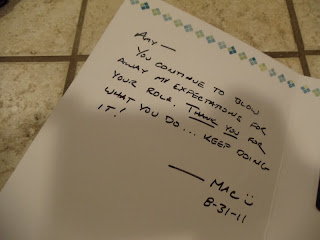 Amy —
You continue to blow
away my expectations for
your role. Thank you for
what you do... keep doing
it!
— Mac ☺
8-31-11